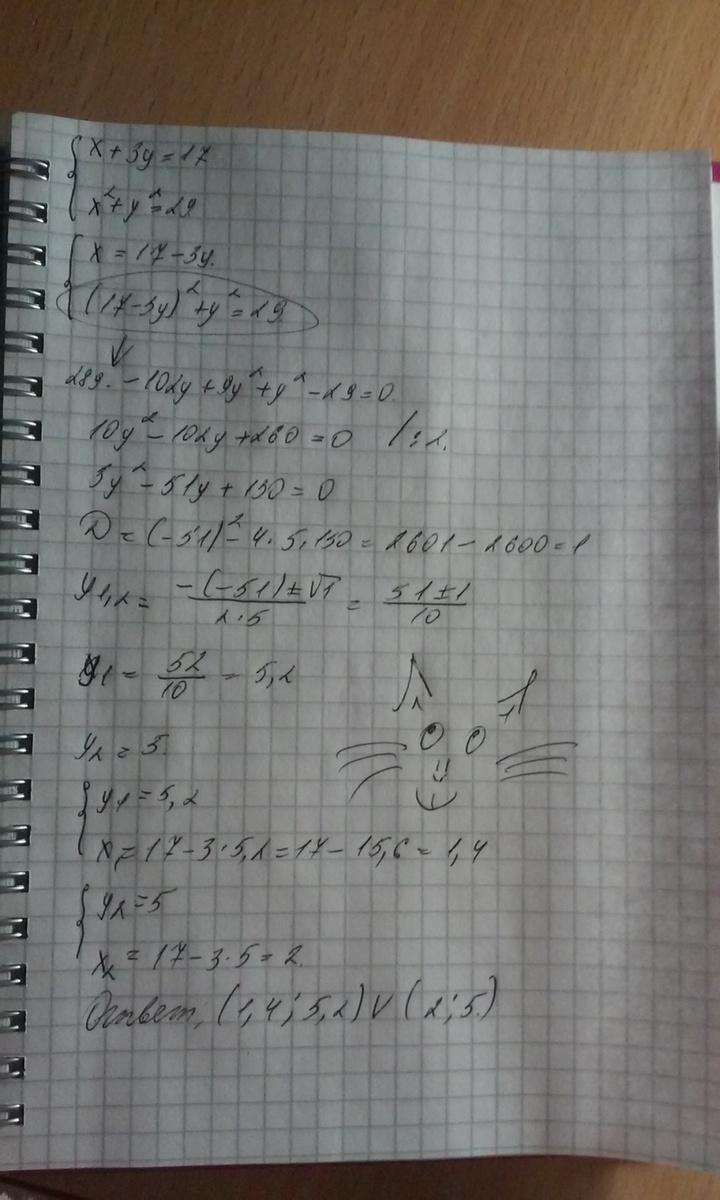 x + 3y = 17
x² + y² = 29
x = 17 - 3y.
(17-3y)² + y² = 29
289. - 102y + 9y² + y² - 29 = 0.
10y² - 102y + 260 = 0 /:2.
5y² - 51y + 130 = 0
D = (-51)² - 4·5·130 = 2601 - 2600 = 1
y1,2 = -(-51)±√1 / 2·5 = 51±1 / 10
y1 = 52/10 = 5,2
y2 = 5.
y1 = 5,2
x1 = 17 - 3·5,2 = 17 - 15,6 = 1,4
y2 = 5
x2 = 17 - 3·5 = 2.
Ответ: (1,4; 5,2) V (2; 5.)